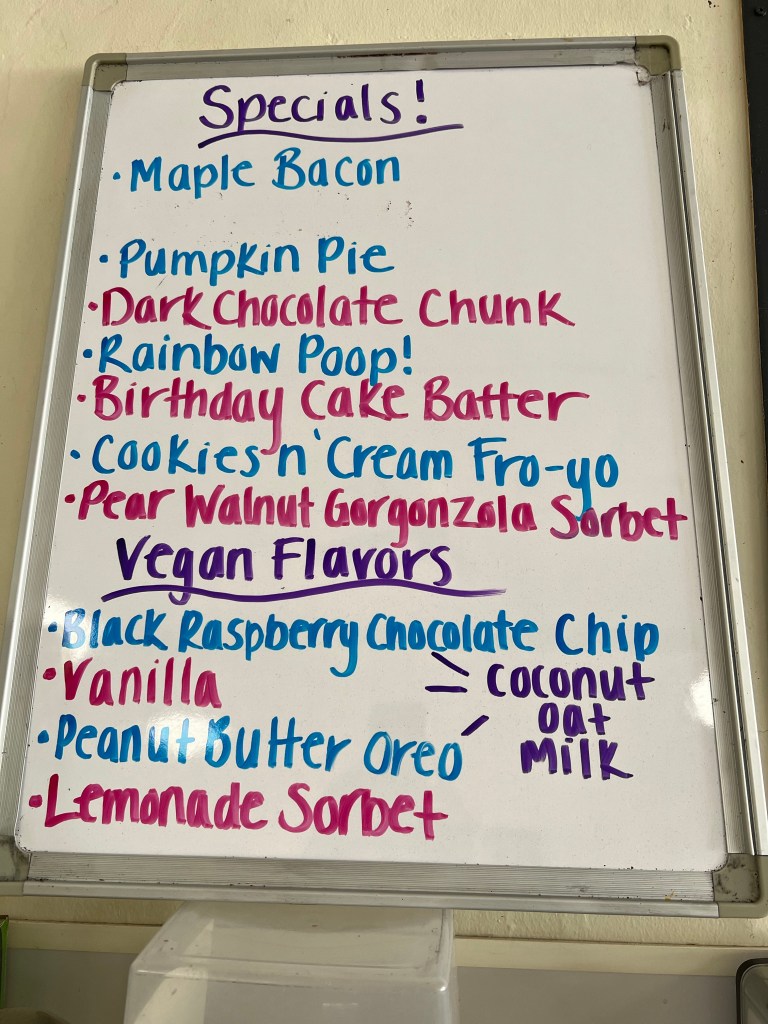 Specials!
· Maple Bacon
· Pumpkin Pie
· Dark Chocolate Chunk
· Rainbow Poop!
· Birthday Cake Batter
· Cookies n' Cream Fro-yo
· Pear Walnut Gorgonzola Sorbet
Vegan Flavors
· Black Raspberry Chocolate Chip
· Vanilla
coconut
oat
milk
· Peanut Butter Oreo
· Lemonade Sorbet